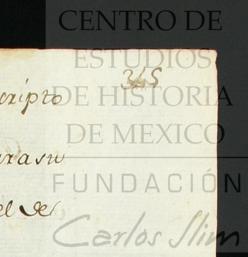 CENTRO DE
ESTUDIOS
DE HISTORIA
DE MEXICO
FUNDACIÓN
Carlos Slim
365
cripto
ara su
el de